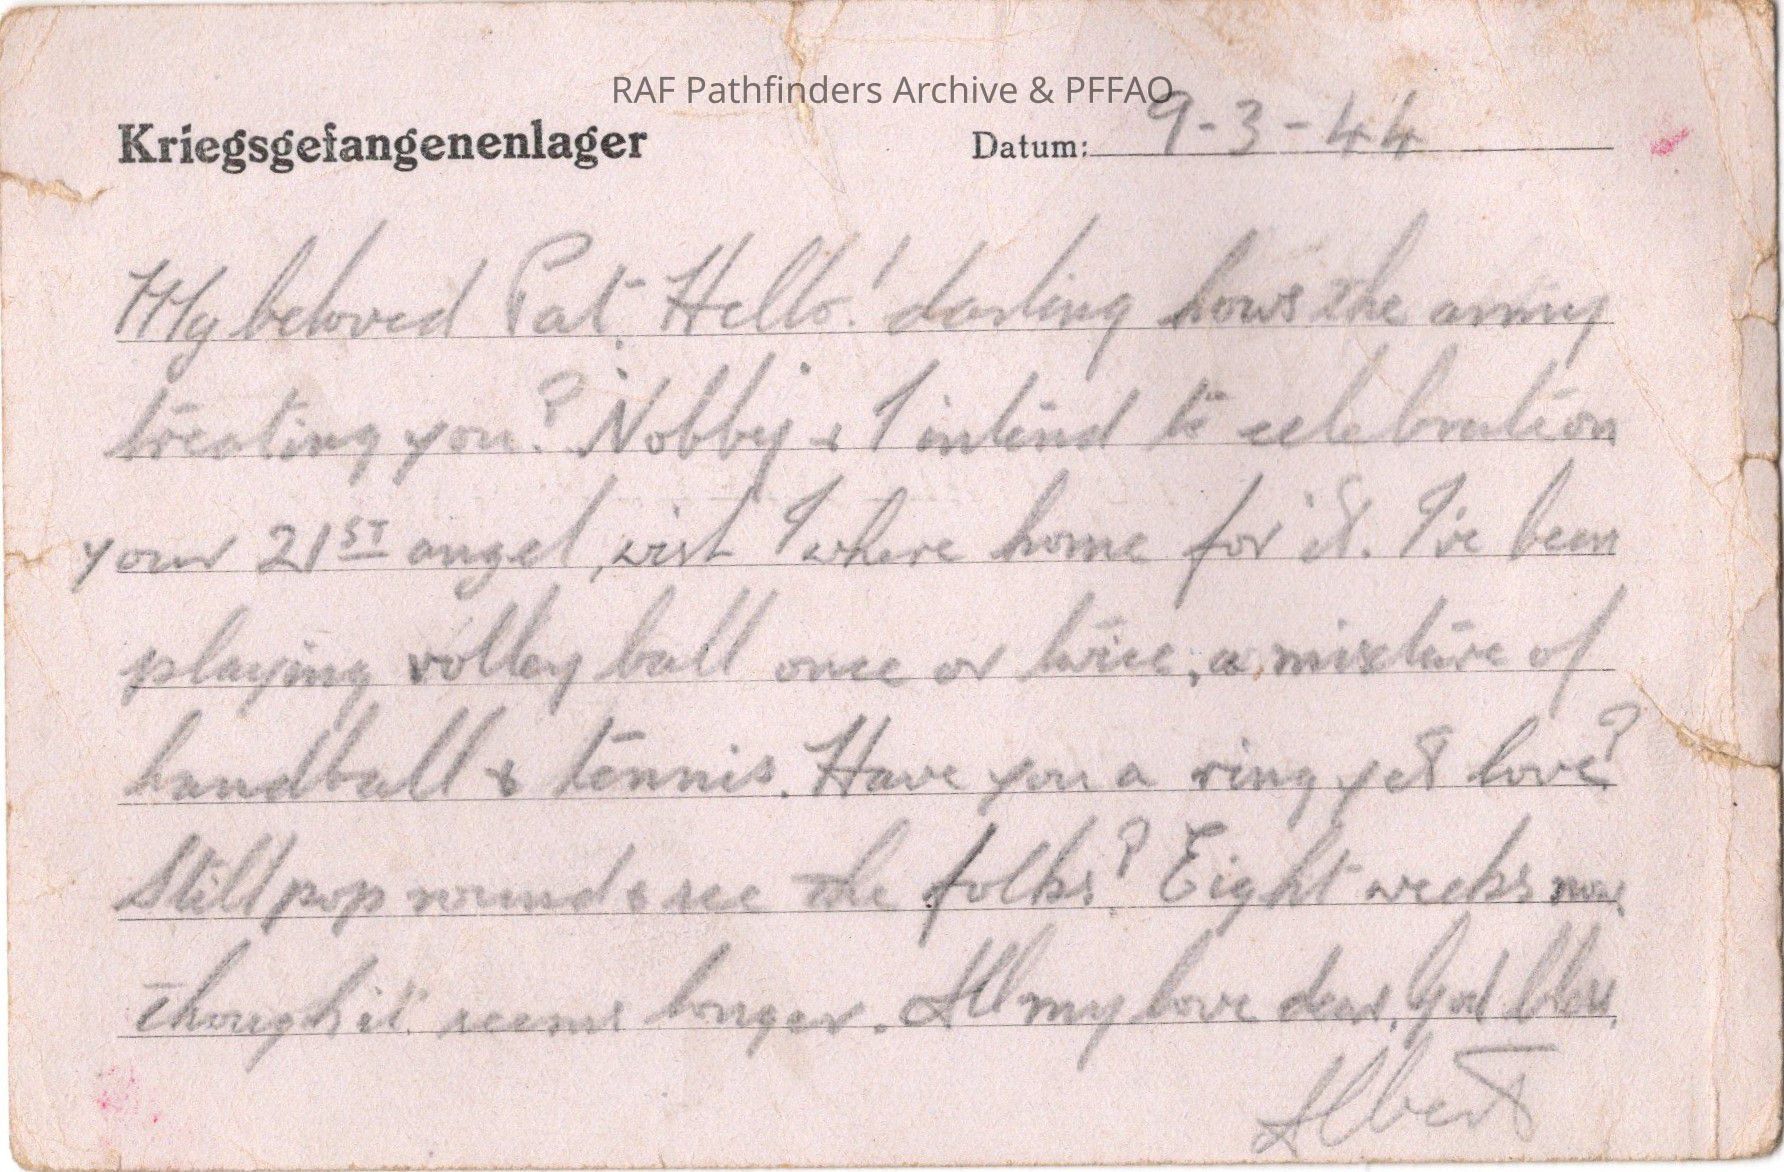 RAF Pathfinders Archive & PFFAO
Kriegsgefangenenlager Datum: 9-3-44
My beloved Pat. Hello! darling hows the army
treating you? Nobby & I intend to celebration
your 21ST angel, wist I where home for it. I've been
playing volley ball once or twice, a mixture of
handball & tennis. Have you a ring yet love?
Still pop round & see the folks? Eight weeks now
though it seems longer. All my love dear, God bless.
Albert